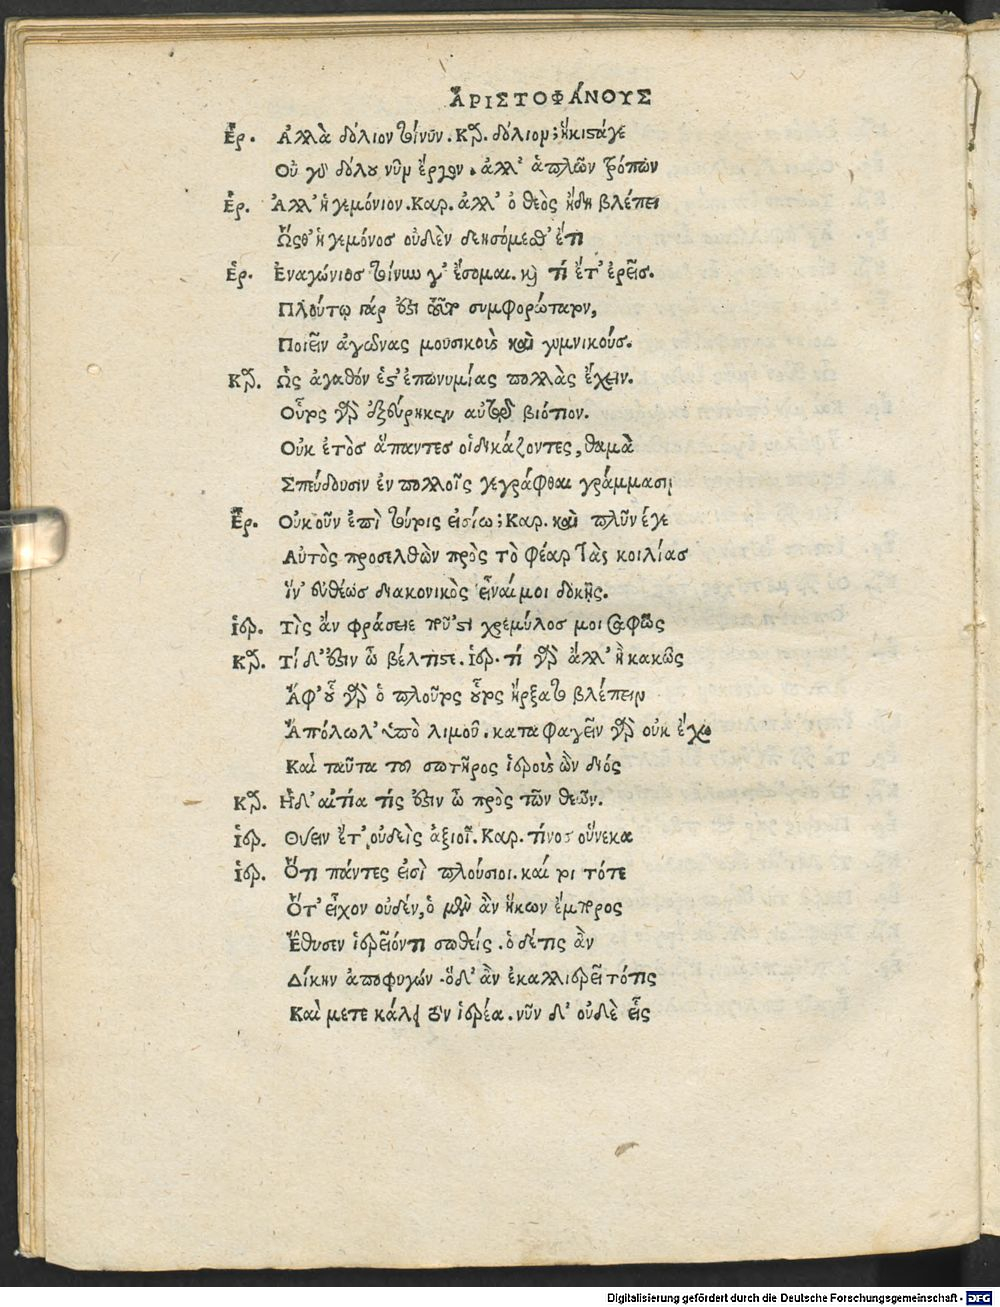 ἈΡΙΣΤΟΦΆΝΟΥΣ
Ἑρ. Ἀλλὰ δόλιον τοίνυν. Καρ. δόλιον; ἥκιστάγε
Οὐ γὸ δόλου νῦμ ἔργον. ἀλλ' ἁπλῶν τρόπων
Ἑρ. Ἀλλ' ἡγεμόνιον. Καρ. ἀλλ' ὁ θεὸς ἤδη βλέπει
Ὥσθ' ἡγεμόνος οὐδὲν δεησόμεσθ' ἔτι
Ἑρ. Ἐναγώνιος τοίνυν γ' ἔσομαι. καὶ τί ἔτ' ἐρεῖς.
Πλούτῳ γάρ ἐστι τοῦτο συμφορώτατον,
Ποιεῖν ἀγῶνας μουσικοὺς καὶ γυμνικούς.
Καρ. Ὡς ἀγαθόν ἐστ' ἐπωνυμίας πολλὰς ἔχειν.
Οὗτος γὰρ ἐξεύρηκεν αὑτῷ βιότιον.
Οὐκ ἐτὸς ἅπαντες οἱ δικάζοντες, θαμὰ
Σπεύδουσιν ἐν πολλοῖς γεγράφθαι γράμμασιν
Ἑρ. Οὐκοῦν ἐπὶ τούτοις εἰσίω; Καρ. καὶ πλῦνέγε
Αὐτὸς προσελθὼν πρὸς τὸ φέαρ τὰς κοιλίας
ἵν' εὐθέως διακονικὸς εἶναί μοι δοκῇς.
ἱερ. Τὶς ἂν φράσειε ποῦ 'στι χρεμύλος μοι σαφῶς
Καρ. Τί δ' ἐστιν ὦ βέλτιστε. ἱερ. τί γὰρ ἀλλ' ἢ κακῶς
Ἀφ' οὗ γὰρ ὁ πλοῦτος οὗτος ἤρξατο βλέπειν
Ἀπόλωλ' ὑπὸ λιμοῦ. καταφαγεῖν γὰρ οὐκ ἔχω
Καὶ ταῦτα τοῦ σωτῆρος ἱερεὺς ὢν διός
Καρ. Ἡδ' αἰτία τίς ἐστιν ὦ πρὸς τῶν θεῶν.
ἱερ. Θύειν ἔτ' οὐδεὶς ἀξιοῖ. Καρ. τίνος οὕνεκα
ἱερ. Ὅτι πάντες εἰσὶ πλούσιοι. καί τοι τότε
Ὅτ' εἶχον οὐδέν, ὁ μὲν ἂν ἥκων ἔμπορος
Ἔθυσεν ἱερεῖόντι σωθείς. ὁ δέτις ἂν
Δίκην ἀποφυγών. ὁ δ' ἂν ἐκαλλιερεῖτότις
Καὶ μετε κάλει τὸν ἱερέα. νῦν δ' οὐδὲ εἷς
Digitalisierung gefördert durch die Deutsche Forschungsgemeinschaft - DFG